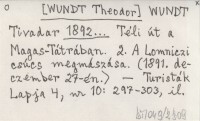 [WUNDT Theodor] WUNDT
Tivadar 1892... Téli út a
Magas-Tátrában. 2. A Lomniczi
csúcs megmászása. (1891. de-
czember 27-én.) — Turisták
Lapja 4, nr 10: 297-303, il.